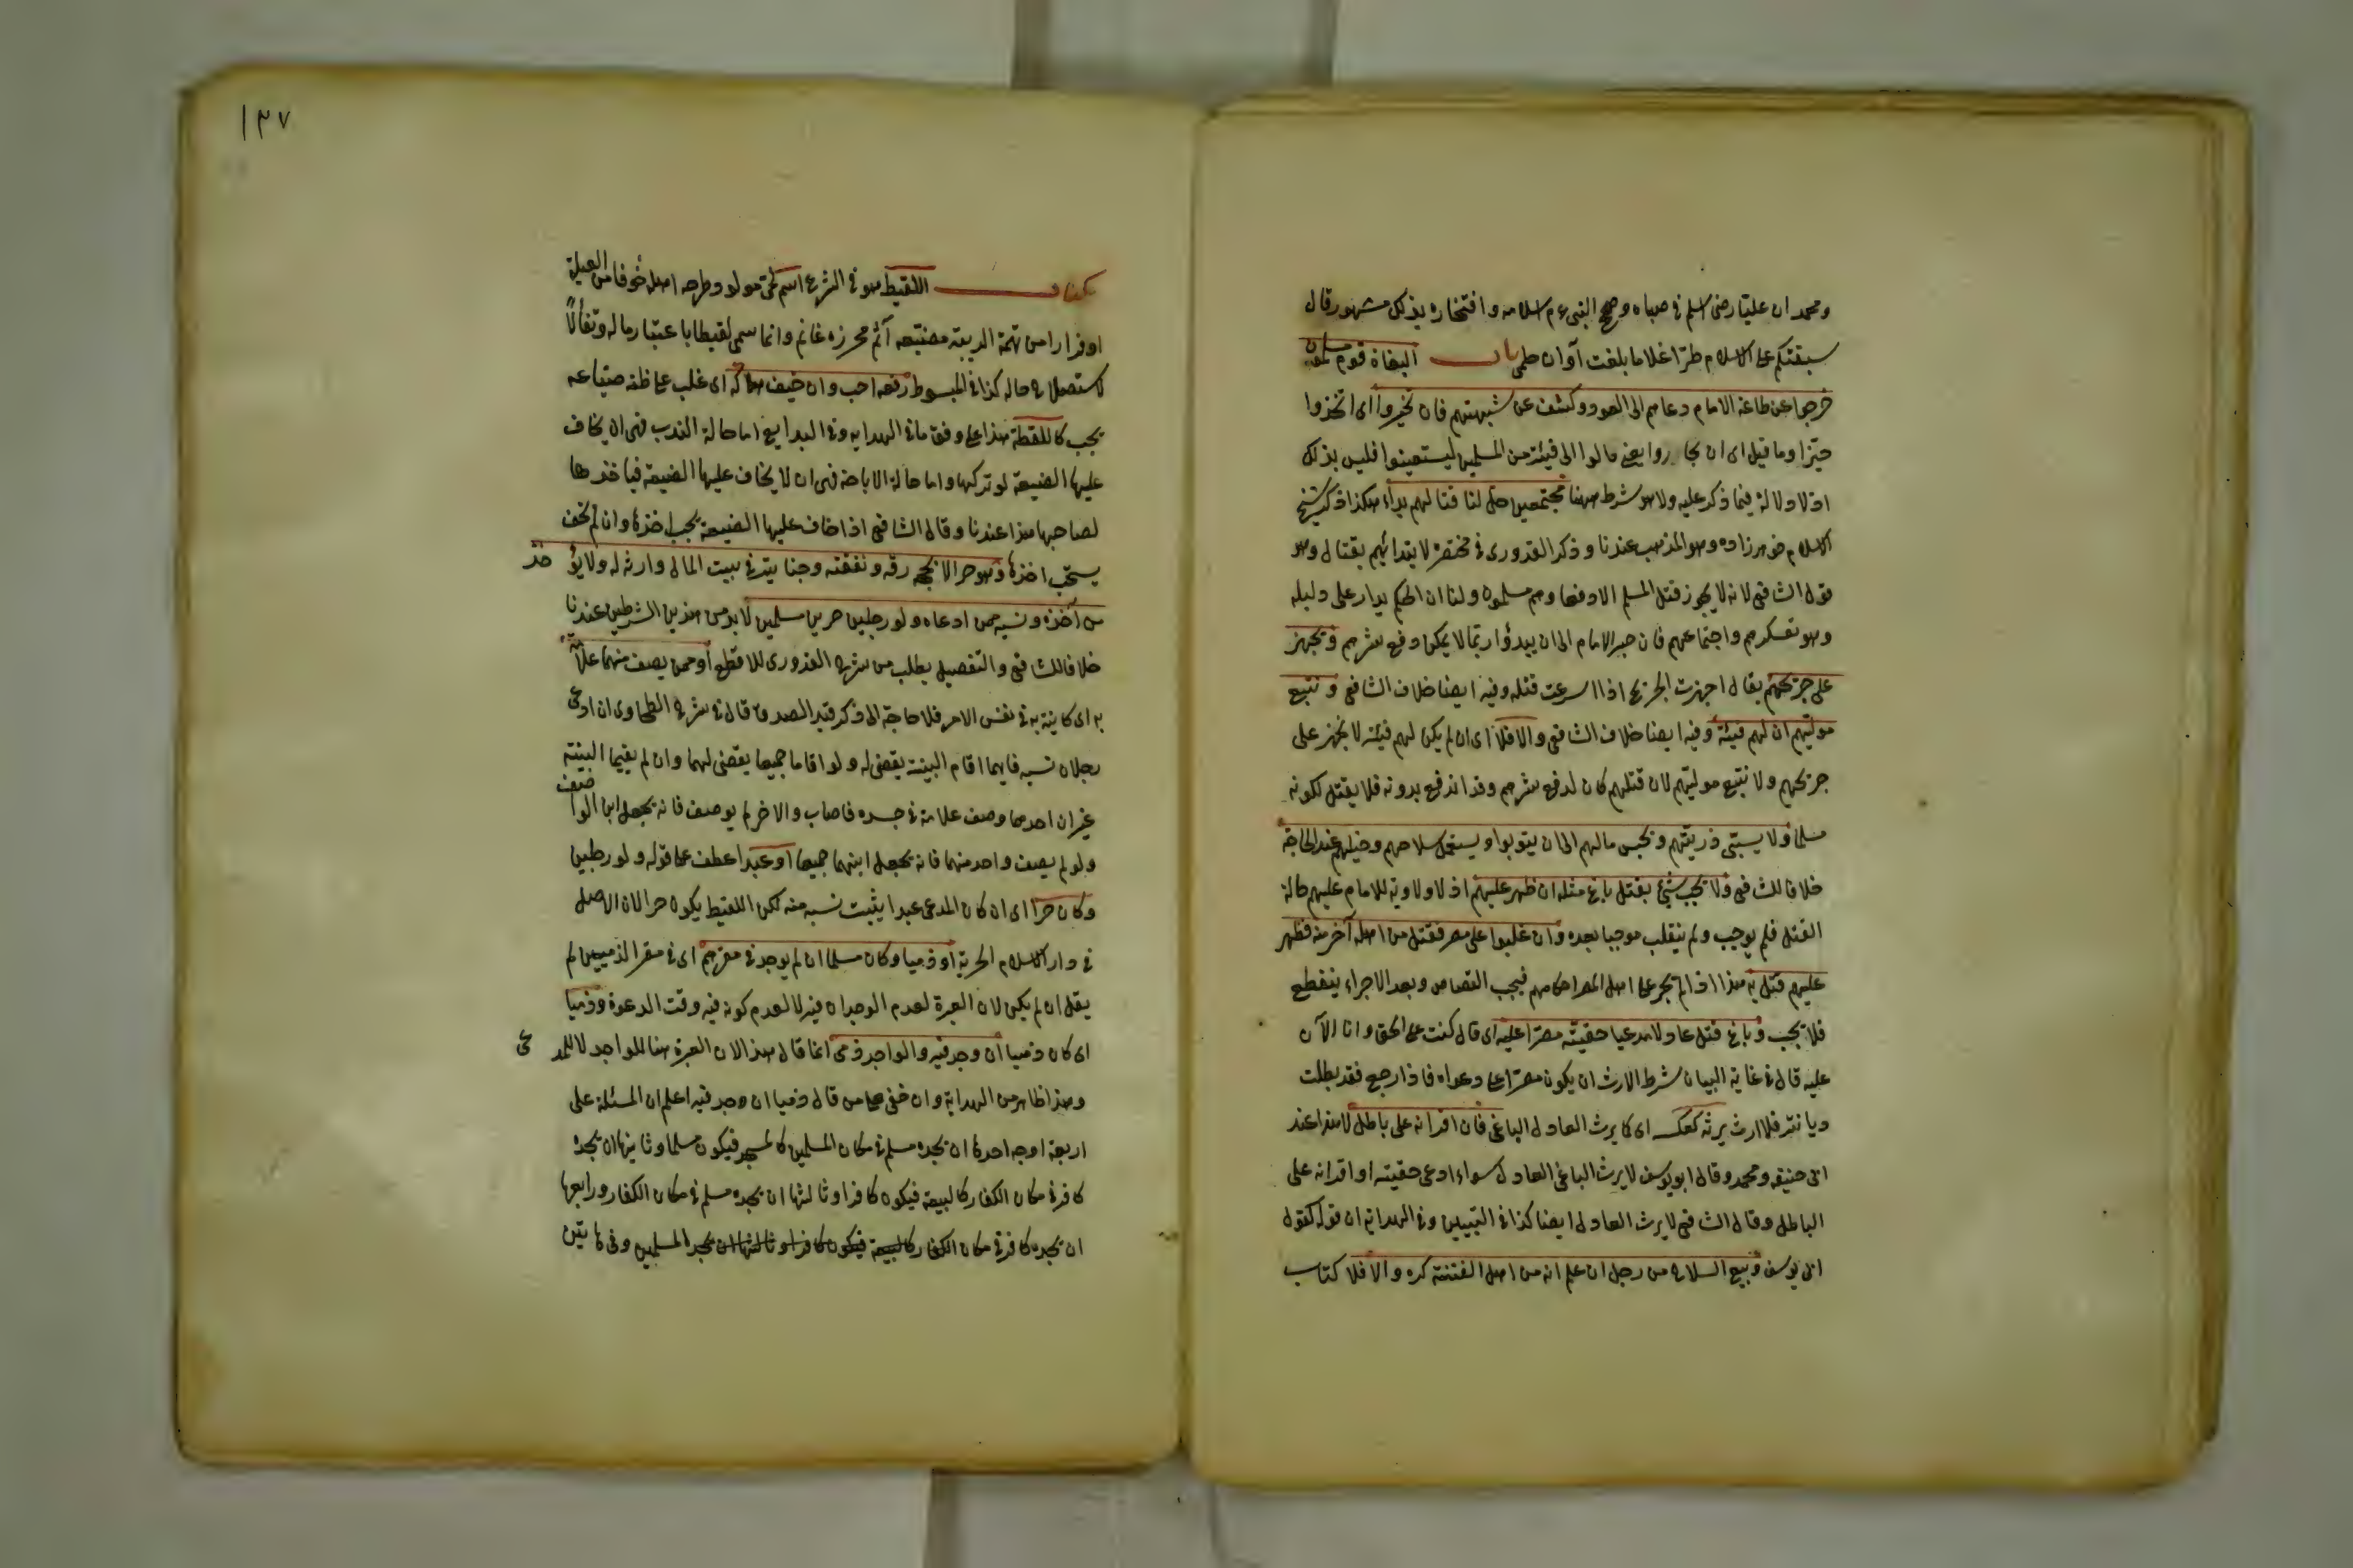 ومحمد ان عليا رضى اسلم فى صباه وصحح النبى عم اسلامه وافتخاره بذلك مشهور قال
سبقتكم على الاسلام طرا غلاما بلغت آوان حلمى باب البغاة قوم مسلمون
خرجوا عن طاعة الامام دعاهم الى العود وكشف عن شبهتهم فان تحيزوا اى اتخذوا
حيزا وما قيل اى ان يعنى مالوا الى فيئة من المسلمين ليستعينوا فليس بذلك
اذ لا دلالة فيما ذكر عليه ولا هو شرط ههنا مجتمعين حل لنا قتالهم بدأ هكذا ذكر شيخ
الاسلام خواهرزاده وهو المذهب عندنا وذكر القدورى فى مختصره لا يبتدائهم بقتال وهو
قول الشافعى لانه لا يجوز قتل المسلم الا دفعا وهم مسلمون ولنا ان الحكم يدار على دليله
وهو تعسكرهم واجتماعهم فان صبر الامام الى ان يبدؤا ربما لا يمكن دفع شرهم ونجهز
على جريحهم يقال اجهزت الجريح اذا اسرعت قتله وفيه ايضا خلاف الشافعى ونتبع
موليهم ان لهم فيئة وفيه ايضا خلاف الشافعى والا فلا اى ان لم يكن لهم فيئة لا نجهز على
جريحهم ولا نتبع موليهم لان قتلهم كان لدفع شرهم وقد اندفع بدونه فلا يقتل لكونه
مسلما ولا يسبى ذريتهم ونحبس مالهم الى ان يتوبوا ويستعمل سلاحهم وخيلهم عند الحاجة
خلافا للشافعى ولا يجب شئ بقتل باغ مثله ان ظهر عليهم اذ لا ولاية للامام عليهم حالة
القتل فلم يوجب ولم ينقلب موجبا بعده وان غلبوا على مصر فقتل من اهله آخر منه فظهر
عليهم قتل به هذا اذا لم يجر على اهل المصر احكامهم فيجب القصاص وبعد الاجراء ينقطع
فلا يجب وباغ قتل عادلا مدعيا حقيته مصرا عليه اى قال كنت على الحق وانا الآن
عليه قال فى غاية البيان شرط الارث ان يكون مصرا على دعواه فاذا رجع فقد بطلت
ديانته فلا ارث يرثه كعكسه اى كما يرث العادل الباغى فان اقر انه على باطل لا هذا عند
ابى حنيفه ومحمد وقال ابو يوسف لا يرث الباغى العادل سواء ادعى حقيته او اقر انه على
الباطل وقال الشافعى لا يرث العادل ايضا كذا فى التبيين وفى الهداية ان قوله كقول
ابى يوسف وبيع السلاح من رجل ان علم انه من اهل الفتنة كره والا فلا كتاب
١٣٧
كتاب اللقيط هو فى الشرع اسم لحى مولود طرحه اهله خوفا من العيلة
او فرارا من تهمة الريبة مضيعه آثم محرزه غانم وانما سمى لقيطا باعتبار ماله وتفألا
لاستصلاح حاله كذا فى المبسوط رفعه احب وان خيف هلاكه اى غلب على ظنه ضياعه
يجب كاللقطة هذا على وفق ما فى الهدايه وفى البدايع اما حالة الندب فهى ان يخاف
عليها الضيعة لو تركها واما حالة الاباحة فهى ان لا يخاف عليها الضيعة فياخذها
لصاحبها هذا عندنا وقال الشافعى اذا خاف عليها الضيعة يجب اخذها وان لم يخف
يستحب اخذها وهو حر الا بحجة رقه ونفقته وجنايته فى بيت المال وارثه له ولا يؤخذ
من آخذه ونسبه ممن ادعاه ولو رجلين حرين مسلمين لا بد من هذين الشرطين عندنا
خلافا للشافعى والتفصيل يطلب من شرح القدورى للاقطع او ممن يصف منهما علامة
به اى كاينة به فى نفس الامر فلا حاجة الى ذكر قيد الصدق قال فى شرح الطحاوى ان ادعى
رجلان نسبه فايهما اقام البينة يقضى له ولو اقاما جميعا يقضى لهما وان لم يقيما البينة
غير ان احدهما وصف علامة فى جسده فاصاب والاخر لم يوصف فانه يجعل ابن الواصف
ولو لم يصف واحد منهما فانه يجعل ابنهما جميعا او عبدا عطف على قوله ولو رجلين
وكان حرا اى ان كان المدعى عبدا يثبت نسبه منه لكن اللقيط يكون حرا لان الاصل
فى دار الاسلام الحرية او ذميا وكان مسلما ان لم يوجد فى مقرهم اى فى مقر الذميين لم
يقل ان لم يكن لان العبرة لعدم الوجدان فيه لا لعدم كونه فيه وقت الدعوة وذميا
اى كان ذميا ان وجد فيه والواجد ذمى انما قال هذا لان العبرة هنا للواجد لا للمدعى
وهذا ظاهر من الهداية وان خفى على من قال ذميا ان وجد فيه اعلم ان المسئلة على
اربعة اوجه احدها ان يجده مسلم فى مكان المسلمين كالمسجد فيكون مسلما وثانيها ان يجده
كافر فى مكان الكفار كالبيعة فيكون كافرا وثالثها ان يجده مسلم فى مكان الكفار ورابعها
ان يجده كافر فى مكان الكفار كالبيعة فيكون كافرا وثالثها ان يجد المسلمين وفى هاتين